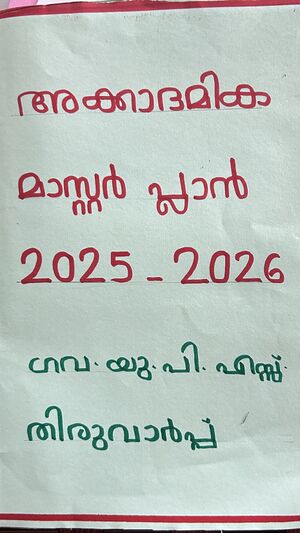 അക്കാദമിക
മാസ്റ്റർ പ്ലാൻ
2025 - 2026
ഗവ. യു. പി. എസ്സ്.
തിരുവാർപ്പ്